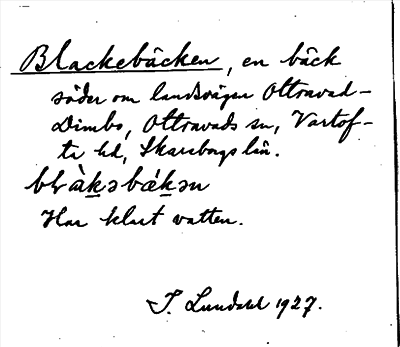 Blackebäcken, en bäck
söder om landsvägen Ottravad-
Dimbo, Ottravads sn, Vartof-
ta hd, Skaraborgs län.
bḷàk̲əbák̲ən
Har klart vatten.
S. Lundahl 1927.